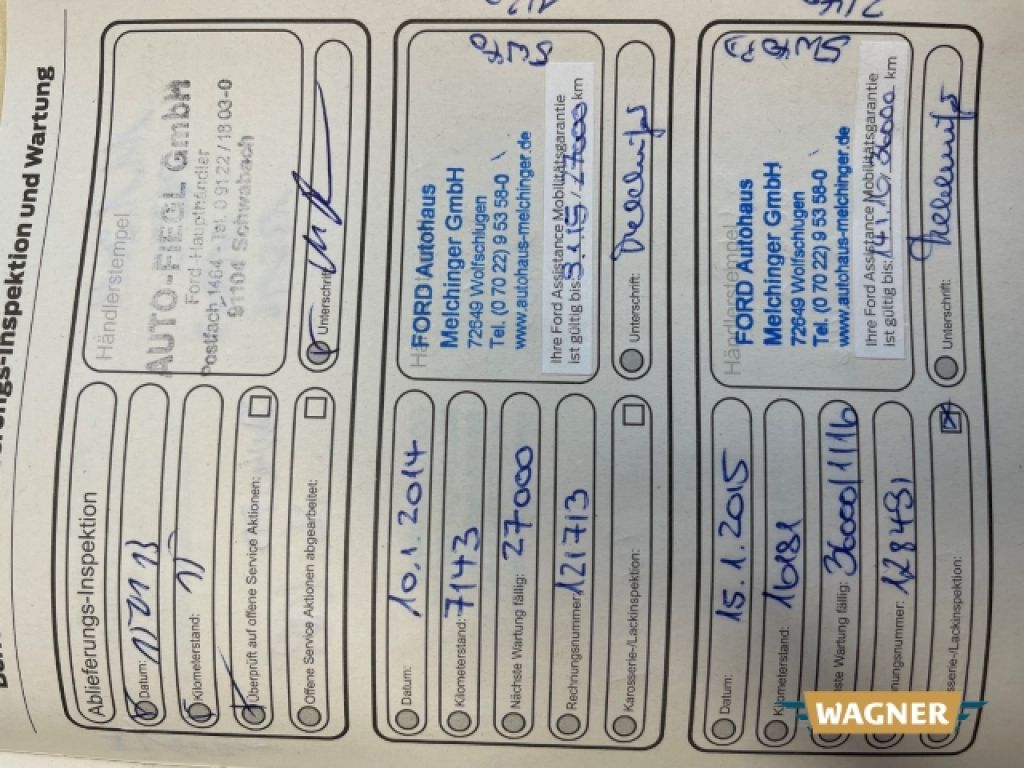 Inspektion und Wartung
Ablieferungs-Inspektion
Datum:
Kilometerstand:
Überprüft auf offene Service Aktionen:
Offene Service Aktionen abgearbeitet:
Händlerstempel
AUTO-FEGL GmbH
Ford-Haupthändler
Postfach 1464 - Tel. 0 91 22 / 18 03-0
91104 Schwabach
Unterschrift:
Datum: 10.1.2014
Kilometerstand: 7143
Nächste Wartung fällig: 27000
Rechnungsnummer: 121713
Karosserie-/Lackinspektion:
FORD Autohaus
Melchinger GmbH
72649 Wolfschlugen
Tel. (0 70 22) 9 53 58-0
www.autohaus-melchinger.de
Ihre Ford Assistance Mobilitätsgarantie
ist gültig bis: 27000 km
Unterschrift:
Datum: 15.1.2015
Kilometerstand: 16181
ste Wartung fällig:
nungsnummer:
sserie-/Lackinspektion:
Händlerstempel
FORD Autohaus
Melchinger GmbH
72649 Wolfschlugen
Tel. (0 70 22) 9 53 58-0
www.autohaus-melchinger.de
Ihre Ford Assistance Mobilitätsgarantie
ist gültig bis: km
Unterschrift:
WAGNER